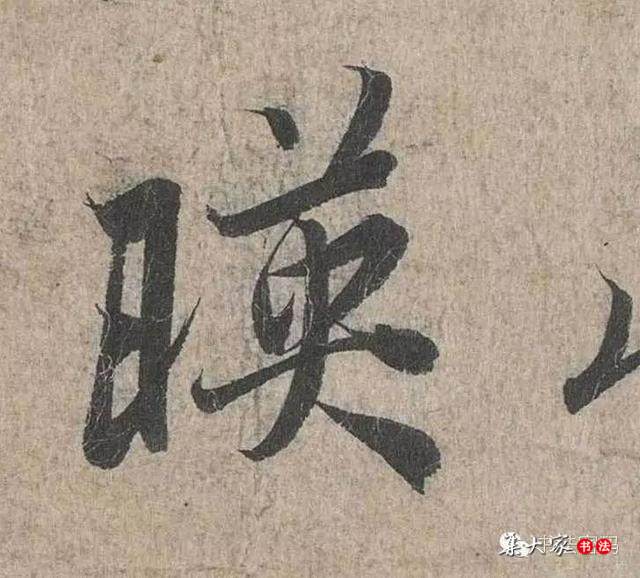 暎
集大家书法